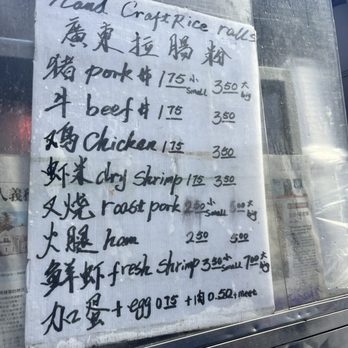 Hand Craft Rice rolls
廣東拉腸粉
猪 pork $ 175 小 small 350 大 big
牛 beef $ 175 350
鸡 Chicken 175 350
虾米 dry shrimp 175 350
叉燒 roast pork 250 小 small 500 大 big
火腿 ham 250 500
鮮虾 fresh shrimp 350 小 small 700 大 big
加蛋 + egg 075 +肉 0.50 + meet